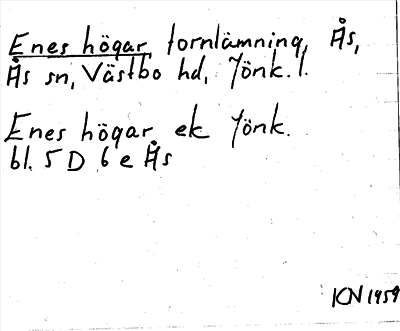 Enes högar fornlämning, Ås,
Ås sn, Västbo hd, Jönk. l.
Enes högar ek Jönk.
bl. 5 D 6 e Ås
KN 1959